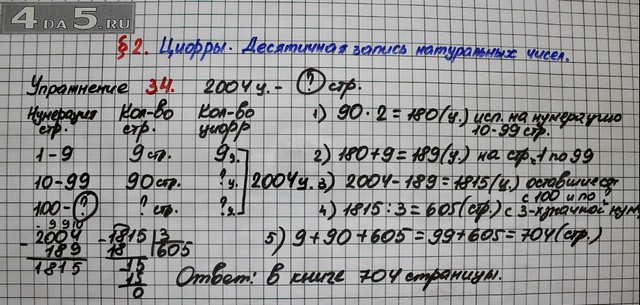 4 DA 5.RU
§2. Цифры. Десятичная запись натуральных чисел.
Упражнение 34. 2004 ц. - ? стр.
Нумерация стр. Кол-во стр. Кол-во цифр
1-9 9 стр. 9 ц.
10-99 90 стр. ? ц. 2004 ц.
100-? ? стр. ? ц.
1) 90 · 2 = 180 (ц.) исп. на нумерацию
10-99 стр.
2) 180 + 9 = 189 (ц.) на стр. 1 по 99
3) 2004 - 189 = 1815 (ц.) оставшиеся
с 100 и по ?
4) 1815 : 3 = 605 (стр.) с 3-хзначной нум.
5) 9 + 90 + 605 = 99 + 605 = 704 (стр.)
9 9 10
- 2004
189
1815
- 1815 3
18 605
- 15
15
0
Ответ: в книге 704 страницы.